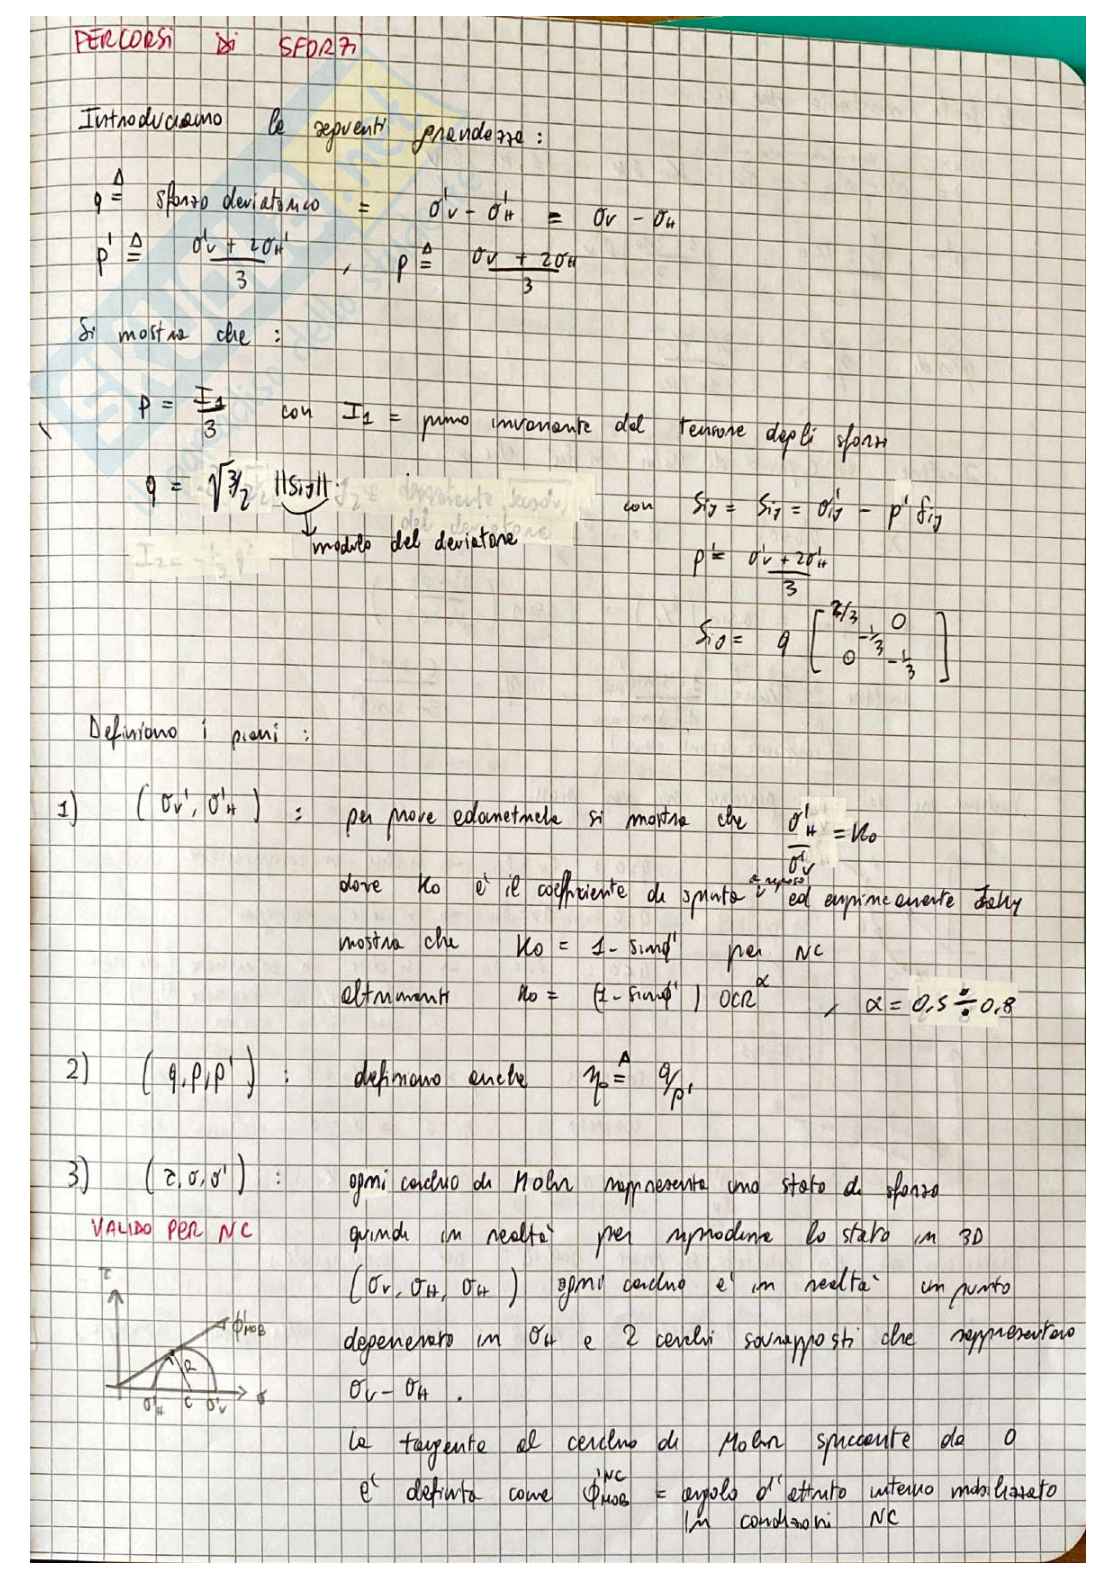 PERCORSI DI SFORZI
Introduciamo le seguenti grandezze :
q ≜ sforzo deviatorico = σ'v - σ'H = σv - σH
p' ≜ (σ'v + 2σH')/3 , p ≜ (σv + 2σH)/3
Si mostra che :
p = I1/3 con I1 = primo invariante del tensore degli sforzi
q = √3/2 ||Sij|| con Sij = Sij = σ'ij - p' δij
modulo del deviatore
p' = (σ'v + 2σ'H)/3
Sij = q [ 2/3 0 -1/3 0 -1/3 ]
Definiamo i piani :
1) ( σv', σ'H ) : per prove edometriche si mostra che σ'H/σ'v = K0
dove K0 è il coefficiente di spinta a riposo ed empiricamente Jaky
mostra che K0 = 1 - sinϕ' per NC
altrimenti K0 = (1 - sinϕ') OCR^α , α = 0,5 ÷ 0,8
2) ( q, p, p' ) : definiamo anche η0 ≜ q/p'
3) ( τ, σ, σ' ) : ogni cerchio di Mohr rappresenta uno stato di sforzo
VALIDO PER NC
quindi in realtà per riprodurre lo stato in 3D
(σv, σH, σH) ogni cerchio è in realtà un punto
degenerato in σH e 2 cerchi sovrapposti che rappresentano
σv - σH .
τ
ϕ'MOB
R
σ'H C σ'v σ
la tangente al cerchio di Mohr spiccante da 0
è definita come ϕ'MOB^NC = angolo d'attrito interno mobilizzato
in condizioni NC
SKUOLA.net